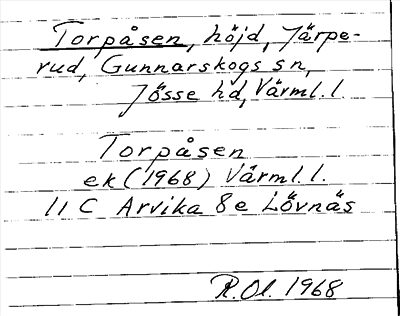 Torpåsen, höjd, Järpe-
rud, Gunnarskogs sn,
Jösse hd, Värml. l.
Torpåsen
ek (1968) Värml. l.
11 C Arvika 8 e Lövnäs
R. Ol. 1968